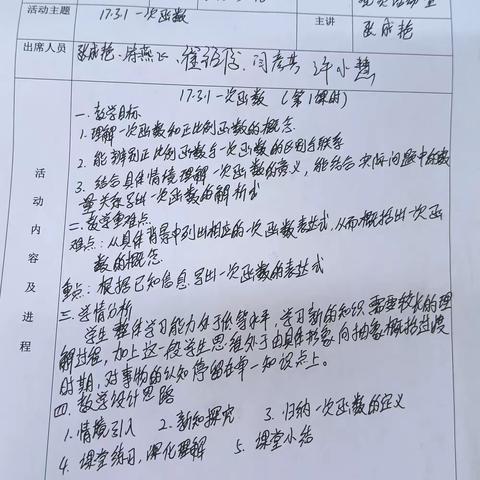 活动主题 17.3.1一次函数
主讲 张成艳
出席人员
17.3.1一次函数 (第1课时)
一.教学目标
1.理解一次函数和正比例函数的概念.
2.能辨别正比例函数与一次函数的区别与联系
3.结合具体情境理解一次函数的意义,能结合实际问题中的数
量关系写出一次函数的解析式
二.教学重难点
难点:从具体背景中列出相应的一次函数表达式,从而概括出一次函
数的概念.
重点:根据已知信息写出一次函数的表达式
三.学情分析
学生整体学习能力处于低等水平,学习新的知识需要较长的理
解过程,加上这一段学生思维处于由具体形象向抽象概括过渡
时期,对事物的认知停留在单一知识点上。
四.教学设计思路
1.情境引入 2.新知探究 3.归纳一次函数的定义
4.课堂练习,深化理解 5.课堂小结
活动内容及进程